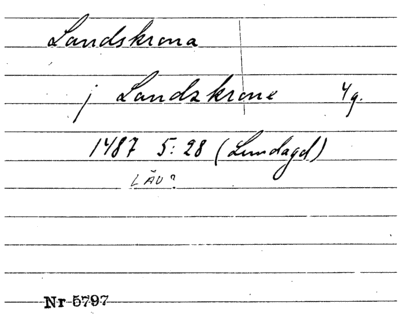 Landskrona
j Landzkrone 4g.
1487 5:28 (Lundagd)
LÄU?
Nr 5797